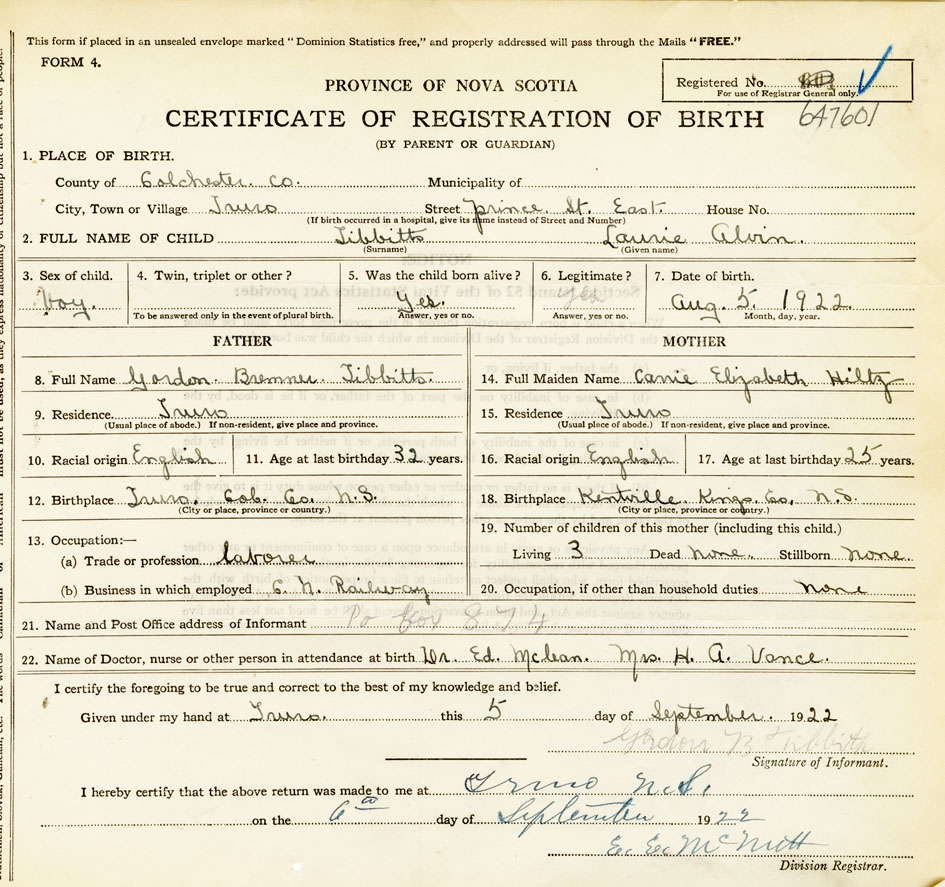 This form if placed in an unsealed envelope marked "Dominion Statistics free," and properly addressed will pass through the Mails "FREE."
FORM 4.
PROVINCE OF NOVA SCOTIA
Registered No.
For use of Registrar General only.
647601
CERTIFICATE OF REGISTRATION OF BIRTH
(BY PARENT OR GUARDIAN)
1. PLACE OF BIRTH.
County of Colchester Co. Municipality of
City, Town or Village Truro Street Prince St. East. House No.
(If birth occurred in a hospital, give its name instead of Street and Number)
2. FULL NAME OF CHILD Tibbitts Laurie Alvin.
(Surname) (Given name)
3. Sex of child. 4. Twin, triplet or other? 5. Was the child born alive? 6. Legitimate? 7. Date of birth.
boy. yes. yes Aug. 5. 1922
To be answered only in the event of plural birth. Answer, yes or no. Answer, yes or no. Month, day, year.
FATHER MOTHER
8. Full Name Gordon Bremner Tibbitts. 14. Full Maiden Name Carrie Elizabeth Hiltz
9. Residence. Truro 15. Residence Truro
(Usual place of abode.) If non-resident, give place and province. (Usual place of abode.) If non-resident, give place and province.
10. Racial origin English 11. Age at last birthday 32 years. 16. Racial origin English 17. Age at last birthday 25 years.
12. Birthplace Truro. Col. Co. N.S. 18. Birthplace Kentville Kings Co. N.S.
(City or place, province or country.) (City or place, province or country.)
19. Number of children of this mother (including this child.)
13. Occupation:—
Living 3 Dead none. Stillborn none.
(a) Trade or profession laborer
(b) Business in which employed C. N. Railway 20. Occupation, if other than household duties none
21. Name and Post Office address of Informant Po Box 874
22. Name of Doctor, nurse or other person in attendance at birth Dr. Ed. Mclean. Mrs. H. A. Vance.
I certify the foregoing to be true and correct to the best of my knowledge and belief.
Given under my hand at Truro. this 5 day of September. 1922
Gordon B Tibbitts
Signature of Informant.
I hereby certify that the above return was made to me at Truro N.S.
on the 6 day of September 1922
Division Registrar.